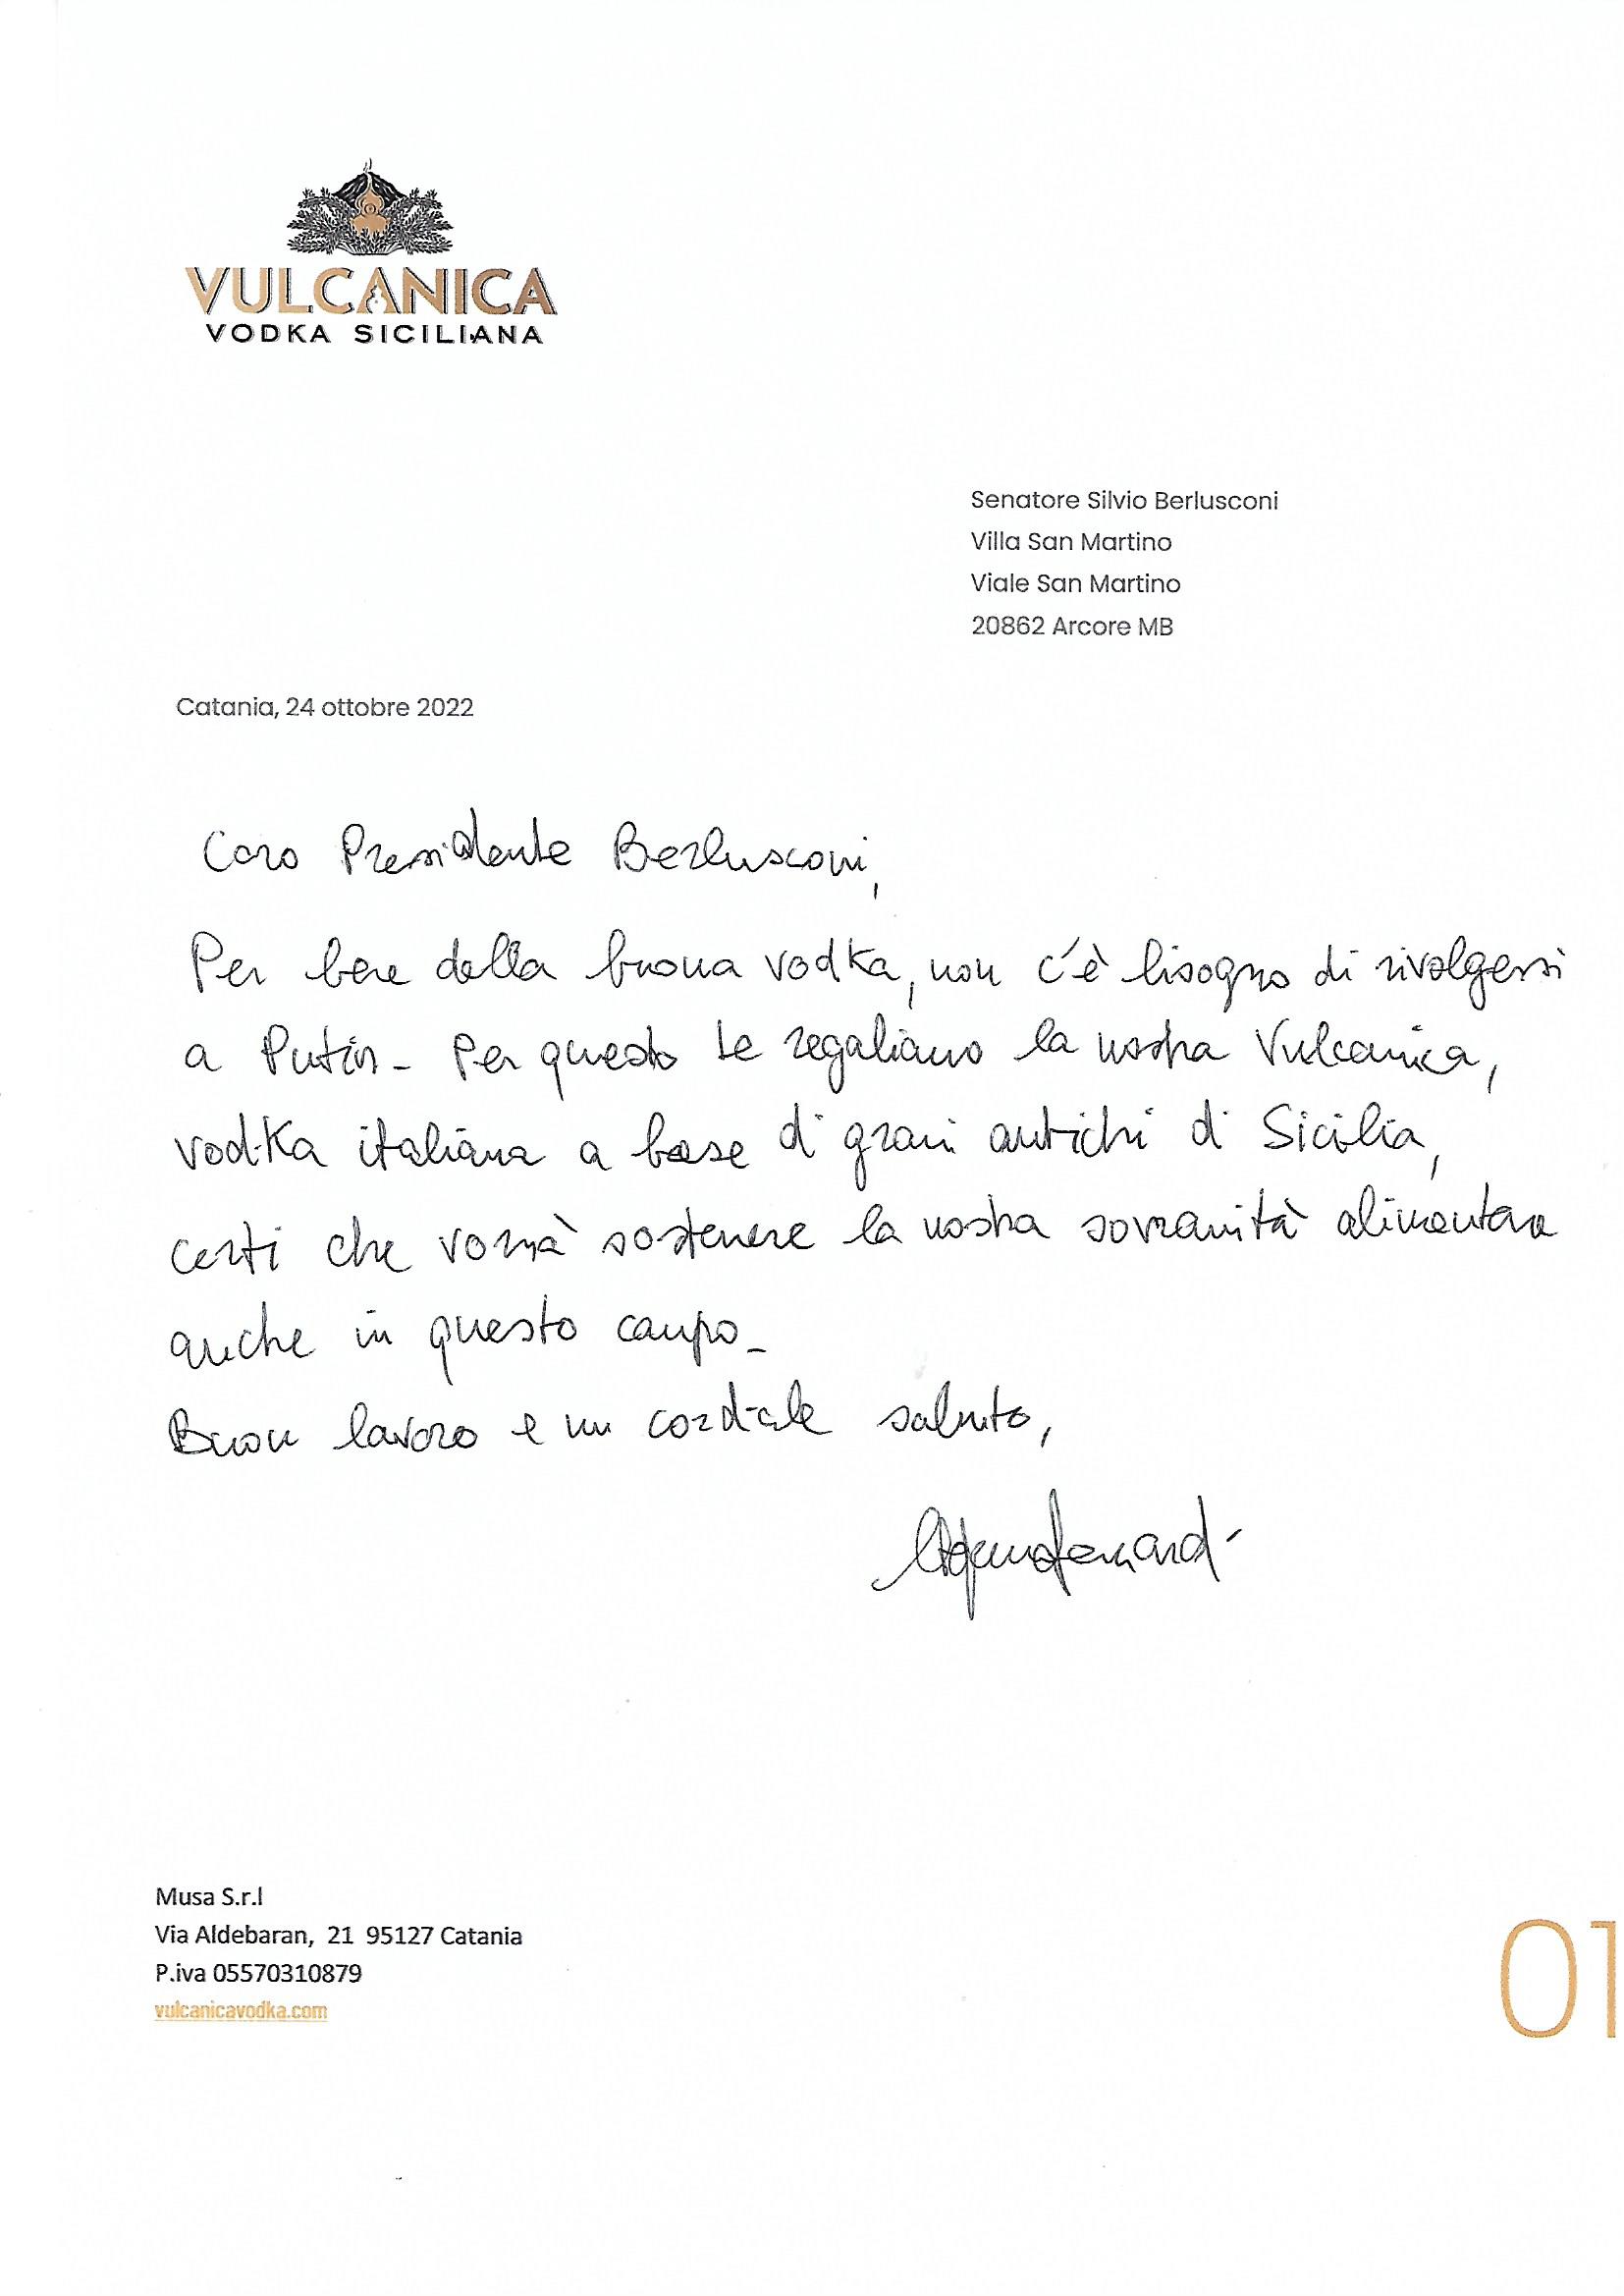 VULCANICA
VODKA SICILIANA
Senatore Silvio Berlusconi
Villa San Martino
Viale San Martino
20862 Arcore MB
Catania, 24 ottobre 2022
Caro Presidente Berlusconi,
Per bere della buona vodka, non c'è bisogno di rivolgersi
a Putin_ Per questo Le regaliamo la nostra Vulcanica,
vodka italiana a base di grani antichi di Sicilia,
certi che vorrà sostenere la nostra sovranità alimentare
anche in questo campo_
Buon lavoro e un cordiale saluto,
Musa S.r.l
Via Aldebaran, 21 95127 Catania
P.iva 05570310879
vulcanicavodka.com
01